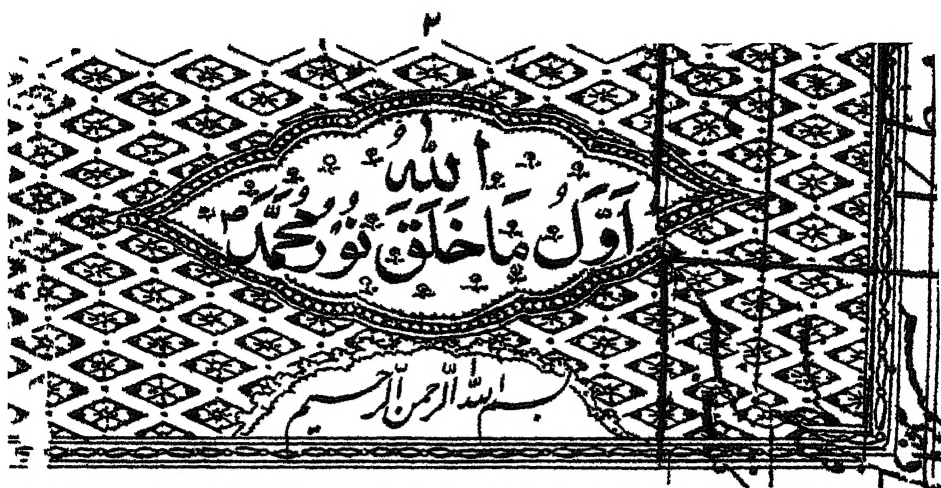 ۲
اَوَّلُ مَا خَلَقَ اللّٰهُ نُوْرُ مُحَمَّدٍ ؐ
بسم اللّٰه الرّحمن الرّحیم